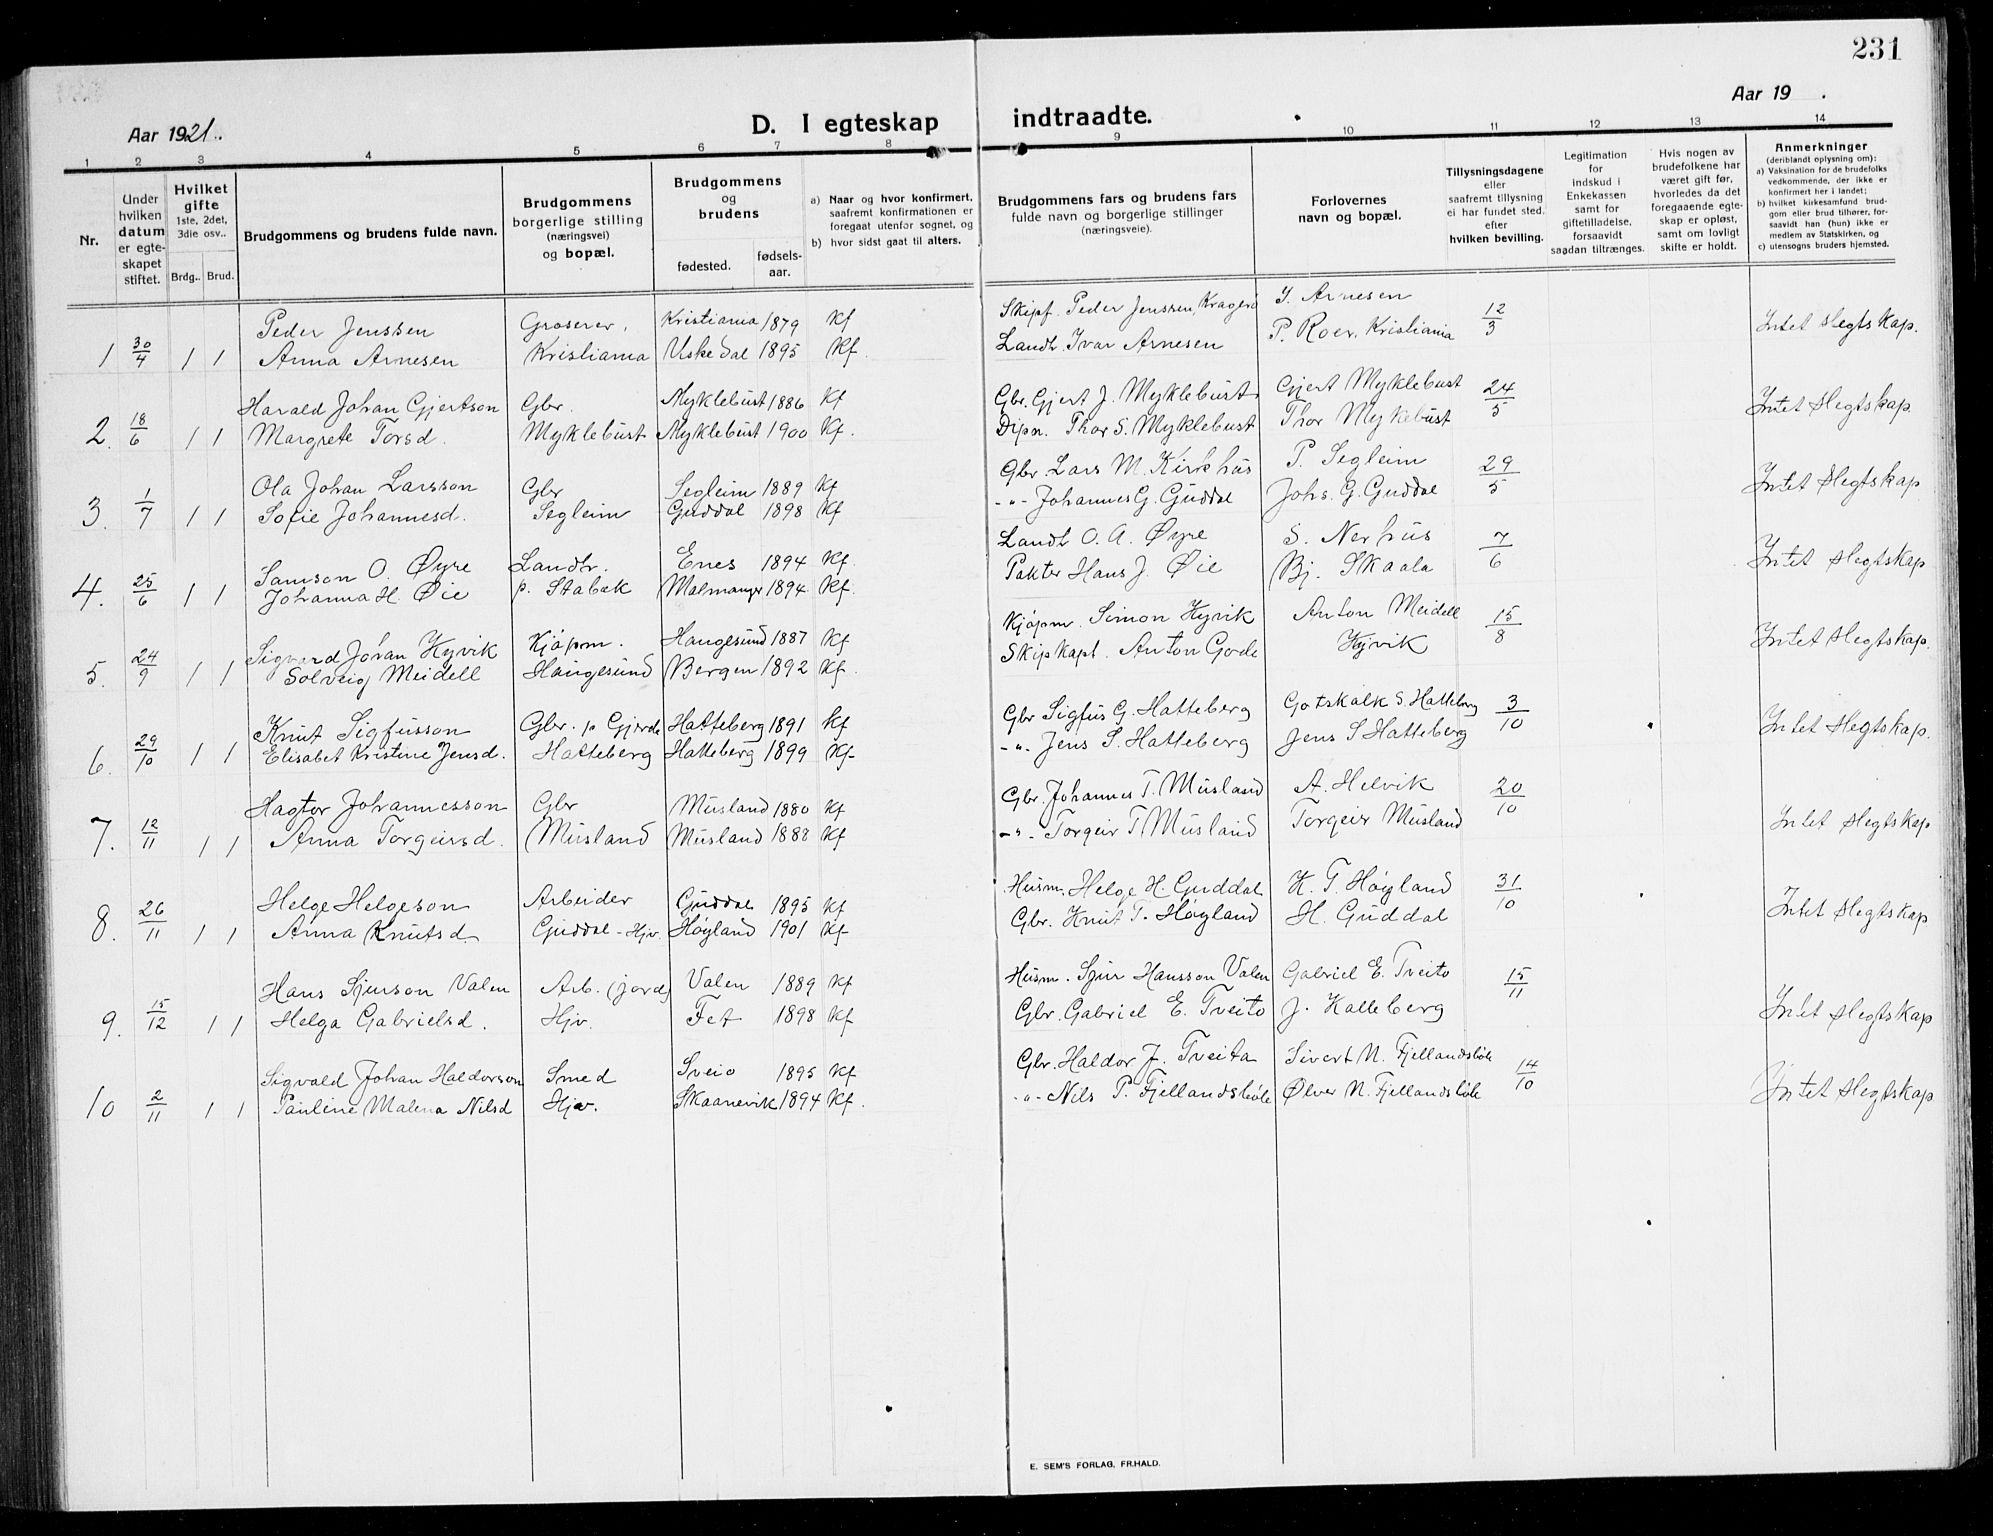 231
Aar 1921.
D. I egteskap indtraadte.
Aar 19 .
1 2 3 4 5 6 7 8 9 10 11 12 13 14
Nr.
Under hvilken datum er egte-skapet stiftet.
Hvilket gifte 1ste, 2det, 3die osv..
Brdg.. Brud.
Brudgommens og brudens fulde navn.
Brudgommens borgerlige stilling (næringsvei) og bopæl.
Brudgommens og brudens
fødested. fødsels-aar.
a) Naar og hvor konfirmert, saafremt konfirmationen er foregaat utenfor sognet, og
b) hvor sidst gaat til alters.
Brudgommens fars og brudens fars fulde navn og borgerlige stillinger (næringsveie).
Forlovernes navn og bopæl.
Tillysningsdagene eller saafremt tillysning ei har fundet sted. efter hvilken bevilling.
Legitimation for indskud i Enkekassen samt for giftetilladelse, forsaavidt saadan tiltrænges.
Hvis nogen av brudefolkene har været gift før, hvorledes da det foregaaende egte-skap er opløst, samt om lovligt skifte er holdt.
Anmerkninger (deriblandt oplysning om): a) Vaksination for de brudefolks vedkommende, der ikke er konfirmert her i landet; b) hvilket kirkesamfund brud-gom eller brud tilhører, for-saavidt han (hun) ikke er medlem av Statskirken, og c) utensogns bruders hjemsted.
Peder Jenssen Groserer, Kristiania 1879 Kf Skipf. Peder Jenssen, Kragerø Y. Arnesen 12/3 Intet slegtskap.
1 30/4 1 1 Anna Arnesen Kristiania Uskedal 1895 Kf. Landh. Ivar Arnesen P. Roer, Kristiania
Harald Johan Gjertson Gbr. Myklebust 1886 Kf Gbr. Gjert J. Myklebust Gjert Myklebust 24/5 Intet slegtskap.
2. 18/6 1 1 Margrete Torsd. Myklebust Myklebust 1900 Kf. Dipn. Thor S. Myklebust Thor Myklebust
Ola Johan Larsson Gbr Segleim 1889 Kf Gbr. Lars M. Kirkhus P. Segleim 29/5 Intet slegtskap
3. 1/7 1 1 Sofie Johannesd. Segleim Guddal 1898 Kf -"- Johannes G. Guddal Johs. G. Guddal
Samson O. Øyre Landbr. Enes 1894 Kf. Landh O. A. Øyre S. Nerhus 7/6 Intet slegtskap
4. 25/6 1 1 Johanna H. Øie p. Stabæk Malmanger 1894 Kf. Pakter Hans J. Øie Bj. Skaala
Sigvard Johan Hyvik Kjøpm. Haugesund 1887 Kf Kjøpm. Simon Hyvik Anton Meidell 15/8 Intet slegtskap.
5. 24/9 1 1 Solveig Meidell Haugesund Bergen 1892 Kf. Skipskapt. Anton Gode Hyvik
Knut Sigfusson Gbr. p Gjerde Hatteberg 1891 Kf Gbr Sigfus G. Hatteberg Gotskalk S. Hatteberg 3/10 Intet slegtskap.
6. 29/10 1 1 Elisabet Kristine Jensd. Hatteberg Hatteberg 1899 Kf -"- Jens S. Hatteberg Jens S Hatteberg
Hagtor Johannesson Gbr Musland 1880 Kf Gbr. Johannes T. Musland A. Helvik 20/10 Intet slegtskap
7. 12/11 1 1 Anna Torgeirsd. Musland Musland 1888 Kf -"- Torgeir T Musland Torgeir Musland
Helge Helgeson Arbeider Guddal 1895 Kf Husm. Helge H. Guddal K. T. Høyland 31/10 Intet slegtskap
8. 26/11 1 1 Anna Knutsd. Guddal - Hjv. Høyland 1901 Kf Gbr. Knut T. Høyland H. Guddal
Hans Sjurson Valen Arb. (jord) Valen 1889 Kf Husm. Sjur Hansson Valen Gabriel E. Tveito 15/11 Intet slegtskap
9. 15/12 1 1 Helga Gabrielsd. Hjv. Fet 1898 Kf Gbr. Gabriel E. Tveito J. Hatteberg
Sigvald Johan Haldorson Smed Sveio 1895 Kf Gbr. Haldor J. Tveita Sivert N. Fjellandsbøle 14/10 Intet slegtskap
10 2/11 1 1 Pauline Malena Nilsd Hjv. Skaanevik 1894 Kf. -"- Nils P. Fjellandsbøle Ølver N. Fjellandsbøle
E. SEM'S FORLAG, FR.HALD.